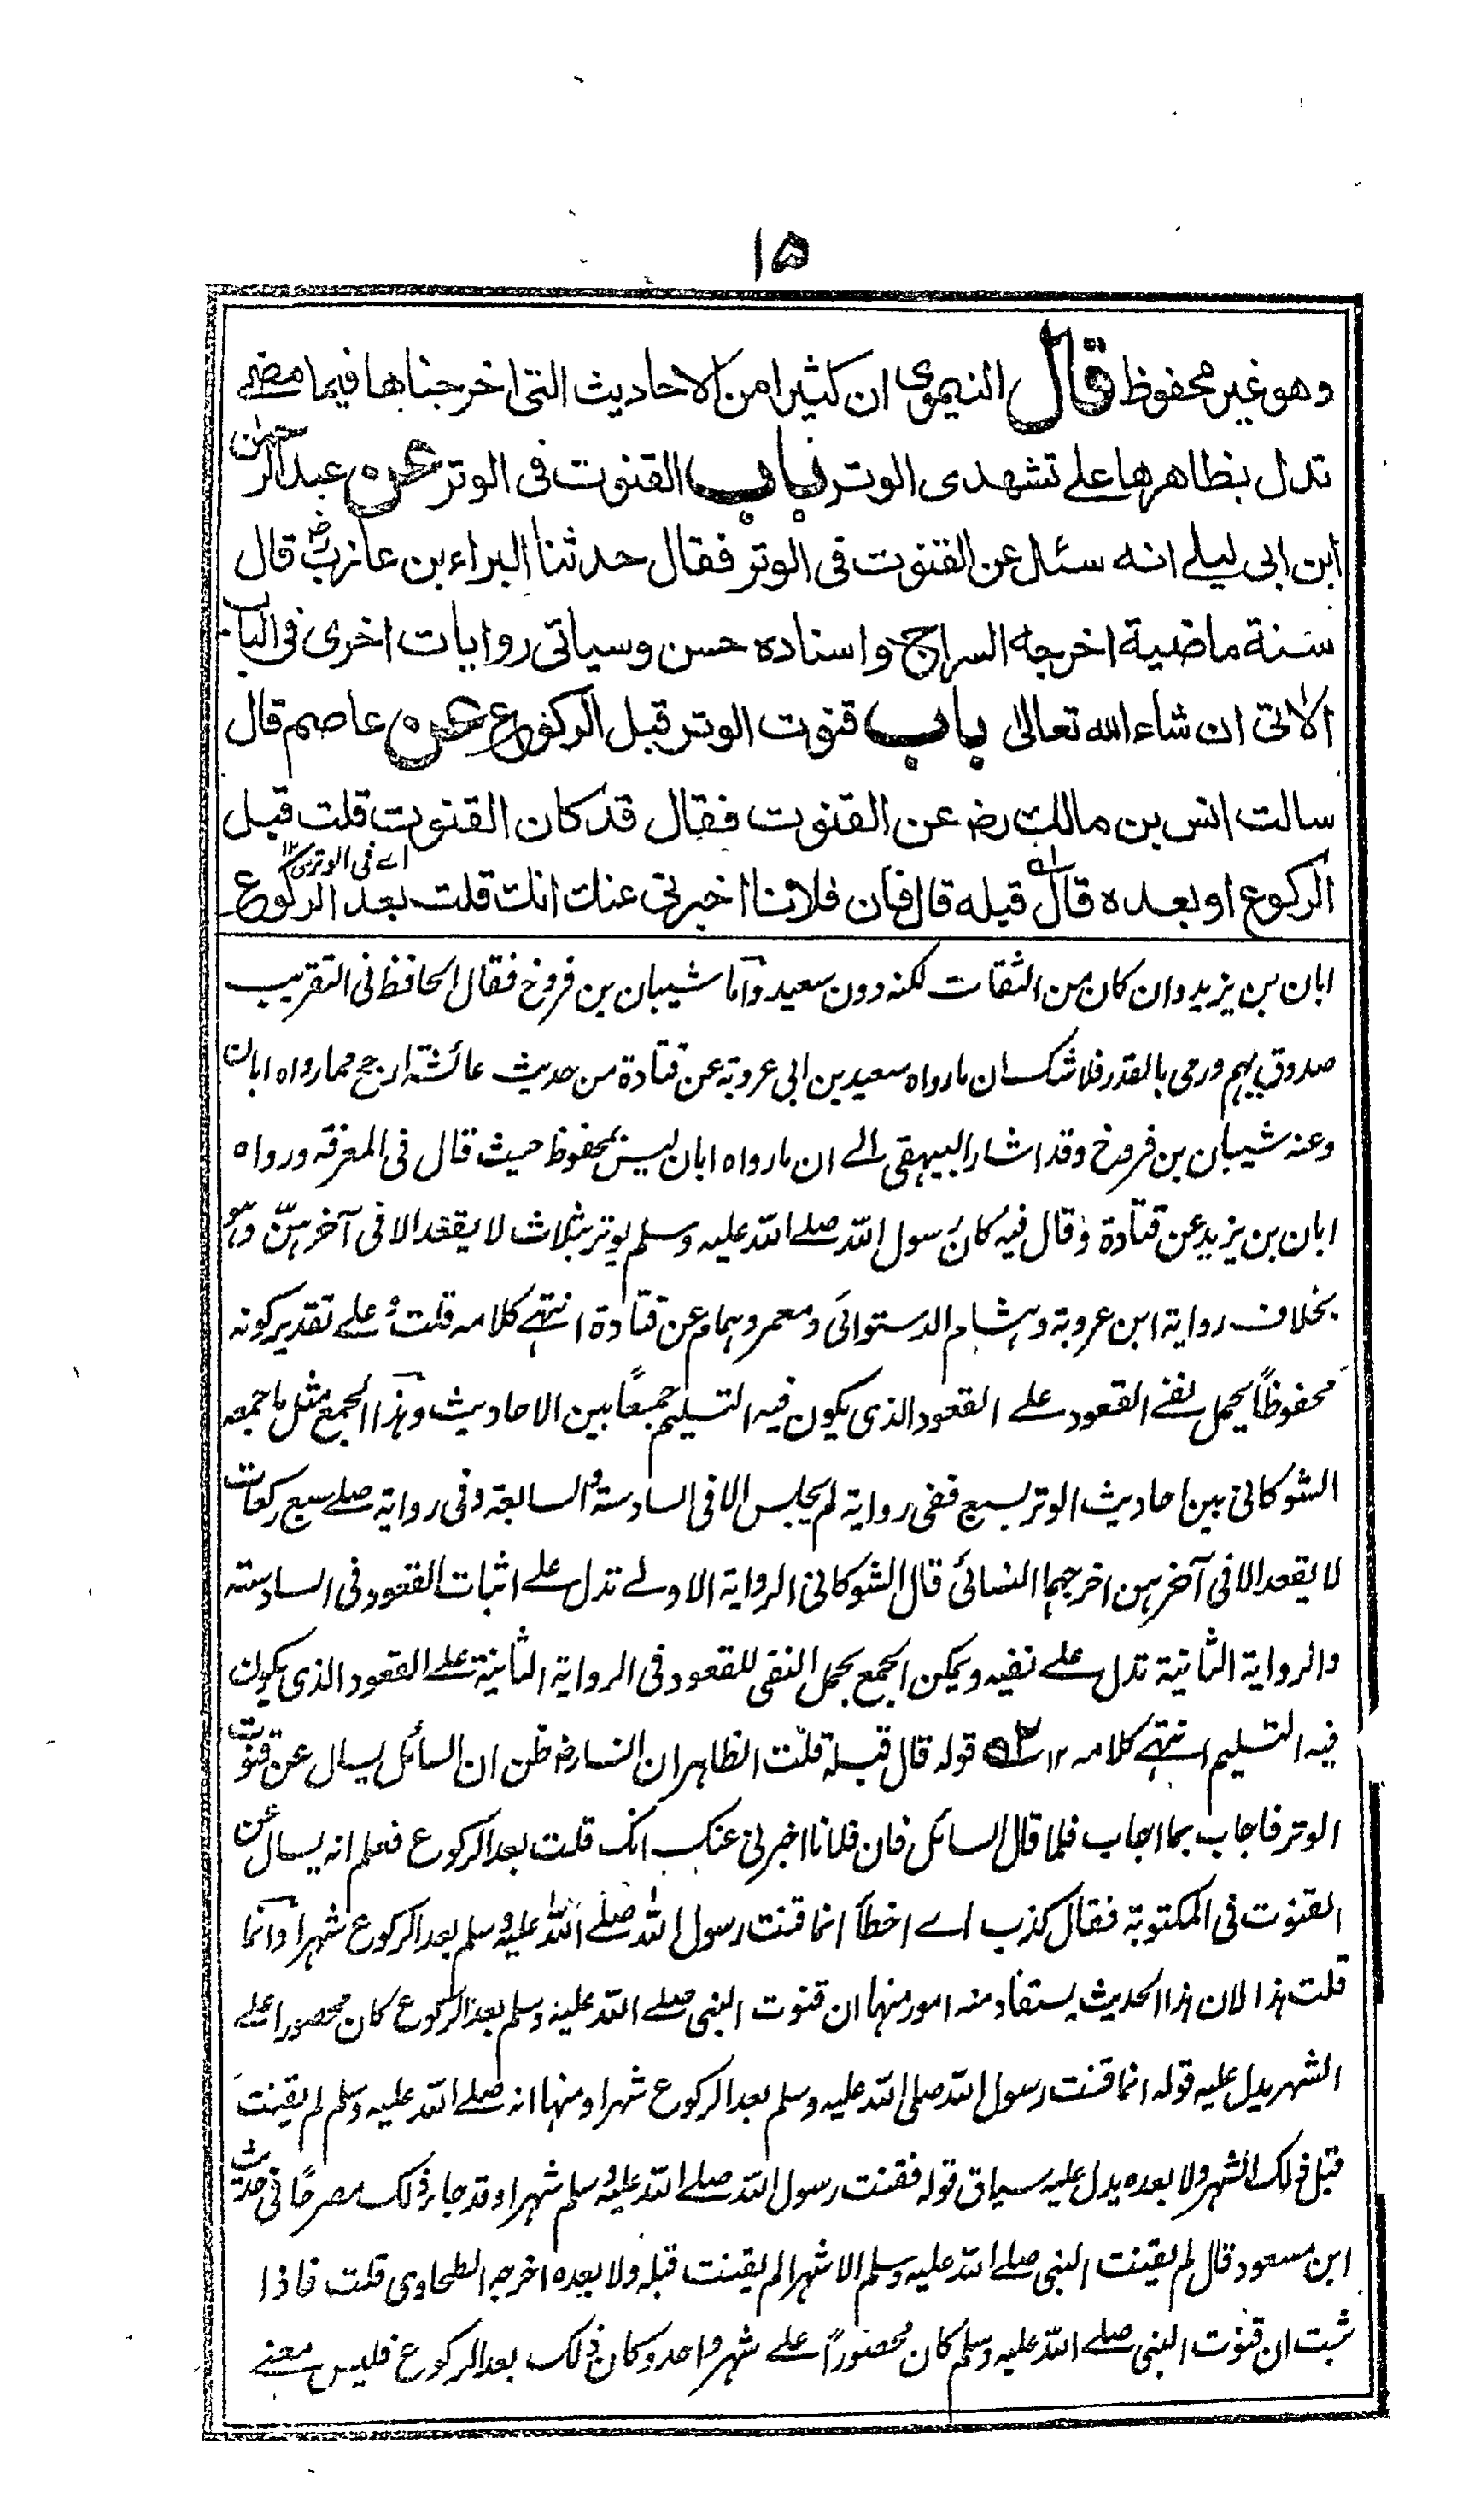 ۱۵
وهو غير محفوظ قال النيموى ان كثيرا من الاحاديث التى اخرجناها فيما مضے
تدل بظاهرها علے تشهدى الوتر باب القنوت فى الوتر عن عبد الرحمٰن
ابن ابى ليلے انه سئل عن القنوت فى الوتر فقال حدثنا البراء بن عازبؓ قال
سنة ماضية اخرجه السراج واسناده حسن وسياتى روايات اخرى فى الباب
الآتى ان شاء الله تعالىٰ باب قنوت الوتر قبل الركوع عن عاصم قال
سالت انس بن مالك رضـ عن القنوت فقال قد كان القنوت قلت قبل
اے فى الوتر ۱۲
الركوع او بعده قال قبله قال فان فلانا اخبرنى عنك انك قلت بعد الركوع
ابان بن يزيد وان كان من الثقات لكنه دون سعيد واما شيبان بن فروخ فقال الحافظ فى التقريب
صدوق يهم ورمى بالقدر فلا شك ان ما رواه سعيد بن ابى عروبة عن قتادة من حديث عائشة ارجح مما رواه ابان
وعنه شيبان بن فروخ وقد اشار البيهقى الے ان ما رواه ابان ليس بمحفوظ حيث قال فى المعرفة ورواه
ابان بن يزيد عن قتادة وقال فيه كان رسول الله صلے الله عليه وسلم يوتر بثلاث لا يقعد الا فى آخرهن وهو
بخلاف رواية ابن عروبة وهشام الدستوائى ومعمر وهمام عن قتادة انتهے كلامه قلت وعلے تقدير كونه
محفوظاً يحمل نفے القعود علے القعود الذى يكون فيه التسليم جميعاً بين الاحاديث وهٰذا الجمع مثل ما جمعه
الشوكانى بين احاديث الوتر بسبع ففى رواية لم يجلس الا فى السادسة والسابعة وفى رواية صلے سبع ركعات
لا يقعد الا فى آخرهن اخرجهما النسائى قال الشوكانى الرواية الاولے تدل علے اثبات القعود فى السادسة
والرواية الثانية تدل علے نفيه ويمكن الجمع بحمل النفى للقعود فى الرواية الثانية علے القعود الذى يكون
فيه التسليم انتهے كلامه ۱۲ ۵۲ قوله قال قبله قلت الظاهر ان انسا رضـ ظن ان السائل يسال عن قنوت
الوتر فاجاب بما اجاب فلما قال السائل فان فلانا اخبرنى عنك انك قلت بعد الركوع فعلم انه يسال عن
القنوت فى المكتوبة فقال كذب اے اخطأ انما قنت رسول الله صلے الله عليه وسلم بعد الركوع شهرا وانما
قلت هذا لان هذا الحديث يستفاد منه امور منها ان قنوت النبى صلے الله عليه وسلم بعد الركوع كان محصورا علے
الشهر يدل عليه قوله انما قنت رسول الله صلى الله عليه وسلم بعد الركوع شهرا ومنها انه صلے الله عليه وسلم لم يقنت
قبل ذلك الشهر ولا بعده يدل عليه سياق قوله فقنت رسول الله صلے الله عليه وسلم شهرا وقد جاء ذلك مصرحًا فى حديث
ابن مسعود قال لم يقنت النبى صلے الله عليه وسلم الا شهرا لم يقنت قبله ولا بعده اخرجه الطحاوى قلت فاذا
ثبت ان قنوت النبى صلے الله عليه وسلم كان محصوراً علے شهر واحد وكان ذلك بعد الركوع فليس معنے